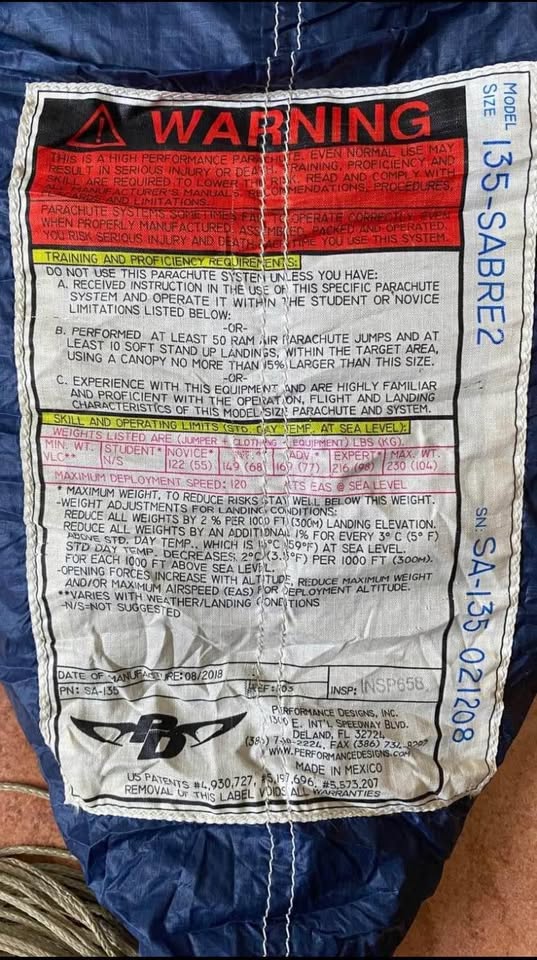 WARNING
THIS IS A HIGH PERFORMANCE PARACHUTE. EVEN NORMAL USE MAY
RESULT IN SERIOUS INJURY OR DEATH. TRAINING, PROFICIENCY AND
SKILL ARE REQUIRED TO LOWER THIS RISK. READ AND COMPLY WITH
ALL MANUFACTURER'S MANUALS, RECOMMENDATIONS, PROCEDURES,
AND LIMITATIONS.
PARACHUTE SYSTEMS SOMETIMES FAIL TO OPERATE CORRECTLY EVEN
WHEN PROPERLY MANUFACTURED, ASSEMBLED, PACKED AND OPERATED.
YOU RISK SERIOUS INJURY AND DEATH TIME YOU USE THIS SYSTEM.
TRAINING AND PROFICIENCY REQUIREMENTS:
DO NOT USE THIS PARACHUTE SYSTEM UNLESS YOU HAVE:
A. RECEIVED INSTRUCTION IN THE USE OF THIS SPECIFIC PARACHUTE
SYSTEM AND OPERATE IT WITHIN THE STUDENT OR NOVICE
LIMITATIONS LISTED BELOW:
-OR-
B. PERFORMED AT LEAST 50 RAM AIR PARACHUTE JUMPS AND AT
LEAST 10 SOFT STAND UP LANDINGS, WITHIN THE TARGET AREA,
USING A CANOPY NO MORE THAN 15% LARGER THAN THIS SIZE.
-OR-
C. EXPERIENCE WITH THIS EQUIPMENT AND ARE HIGHLY FAMILIAR
AND PROFICIENT WITH THE OPERATION, FLIGHT AND LANDING
CHARACTERISTICS OF THIS MODEL/SIZE PARACHUTE AND SYSTEM.
SKILL AND OPERATING LIMITS (STD. DAY TEMP. AT SEA LEVEL):
WEIGHTS LISTED ARE (JUMPER + CLOTHING + EQUIPMENT) LBS (KG).
MIN. WT. STUDENT* NOVICE* INT.* ADV.* EXPERT* MAX. WT.
VLC** N/S 122 (55) 149 (68) 169 (77) 216 (98) 230 (104)
MAXIMUM DEPLOYMENT SPEED: 120 KTS EAS @ SEA LEVEL
* MAXIMUM WEIGHT, TO REDUCE RISKS STAY WELL BELOW THIS WEIGHT.
-WEIGHT ADJUSTMENTS FOR LANDING CONDITIONS:
REDUCE ALL WEIGHTS BY 2 % PER 1000 FT (300M) LANDING ELEVATION.
REDUCE ALL WEIGHTS BY AN ADDITIONAL 1% FOR EVERY 3° C (5° F)
ABOVE STD. DAY TEMP. WHICH IS 15°C (59°F) AT SEA LEVEL.
STD DAY TEMP. DECREASES 2°C (3.5°F) PER 1000 FT (300M).
FOR EACH 1000 FT ABOVE SEA LEVEL.
-OPENING FORCES INCREASE WITH ALTITUDE, REDUCE MAXIMUM WEIGHT
AND/OR MAXIMUM AIRSPEED (EAS) FOR DEPLOYMENT ALTITUDE.
**VARIES WITH WEATHER/LANDING CONDITIONS
-N/S=NOT SUGGESTED
DATE OF MANUFACTURE: 08/2018
PN: SA-135
INSP: INSP658
PD
PERFORMANCE DESIGNS, INC.
1300 E. INT'L SPEEDWAY BLVD.
DELAND, FL 32724
FAX (386)
WWW.PERFORMANCEDESIGNS.COM
MADE IN MEXICO
US PATENTS #4,930,727, #5,197,696, #5,573,207
REMOVAL OF THIS LABEL VOIDS ALL WARRANTIES
MODEL
SIZE 135-SABRE2
SN: SA-135 021208